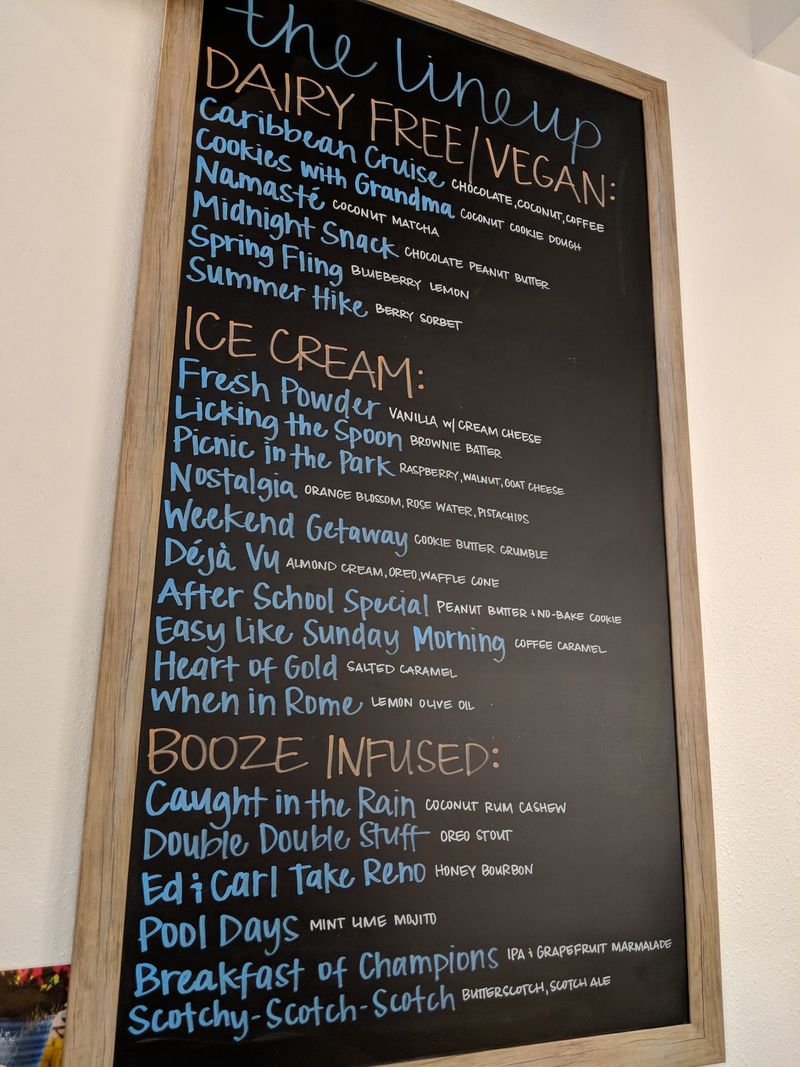 the lineup
DAIRY FREE/VEGAN:
Caribbean Cruise CHOCOLATE, COCONUT, COFFEE
Cookies with Grandma COCONUT COOKIE DOUGH
Namasté COCONUT MATCHA
Midnight Snack CHOCOLATE PEANUT BUTTER
Spring Fling BLUEBERRY LEMON
Summer Hike BERRY SORBET
ICE CREAM:
Fresh Powder VANILLA w/ CREAM CHEESE
Licking the Spoon BROWNIE BATTER
Picnic in the Park RASPBERRY, WALNUT, GOAT CHEESE
Nostalgia ORANGE BLOSSOM, ROSE WATER, PISTACHIOS
Weekend Getaway COOKIE BUTTER CRUMBLE
Déjà Vu ALMOND CREAM, OREO, WAFFLE CONE
After School Special PEANUT BUTTER & NO-BAKE COOKIE
Easy Like Sunday Morning COFFEE CARAMEL
Heart of Gold SALTED CARAMEL
When in Rome LEMON OLIVE OIL
BOOZE INFUSED:
Caught in the Rain COCONUT RUM CASHEW
Double Double Stuff OREO STOUT
Ed & Carl Take Reno HONEY BOURBON
Pool Days MINT LIME MOJITO
Breakfast of Champions IPA & GRAPEFRUIT MARMALADE
Scotchy-Scotch-Scotch BUTTERSCOTCH, SCOTCH ALE